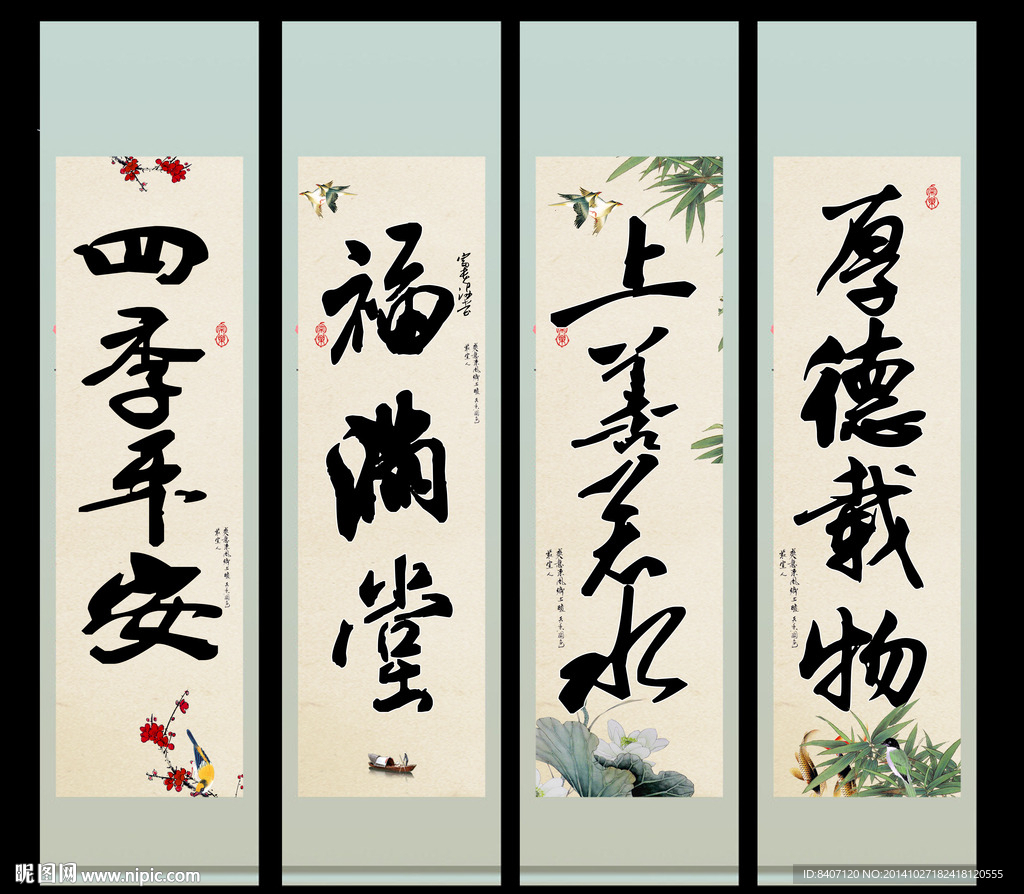 四季平安
福满堂
上善若水
厚德载物
昵图网 www.nipic.com
ID:8407120 NO:20141027182418120555